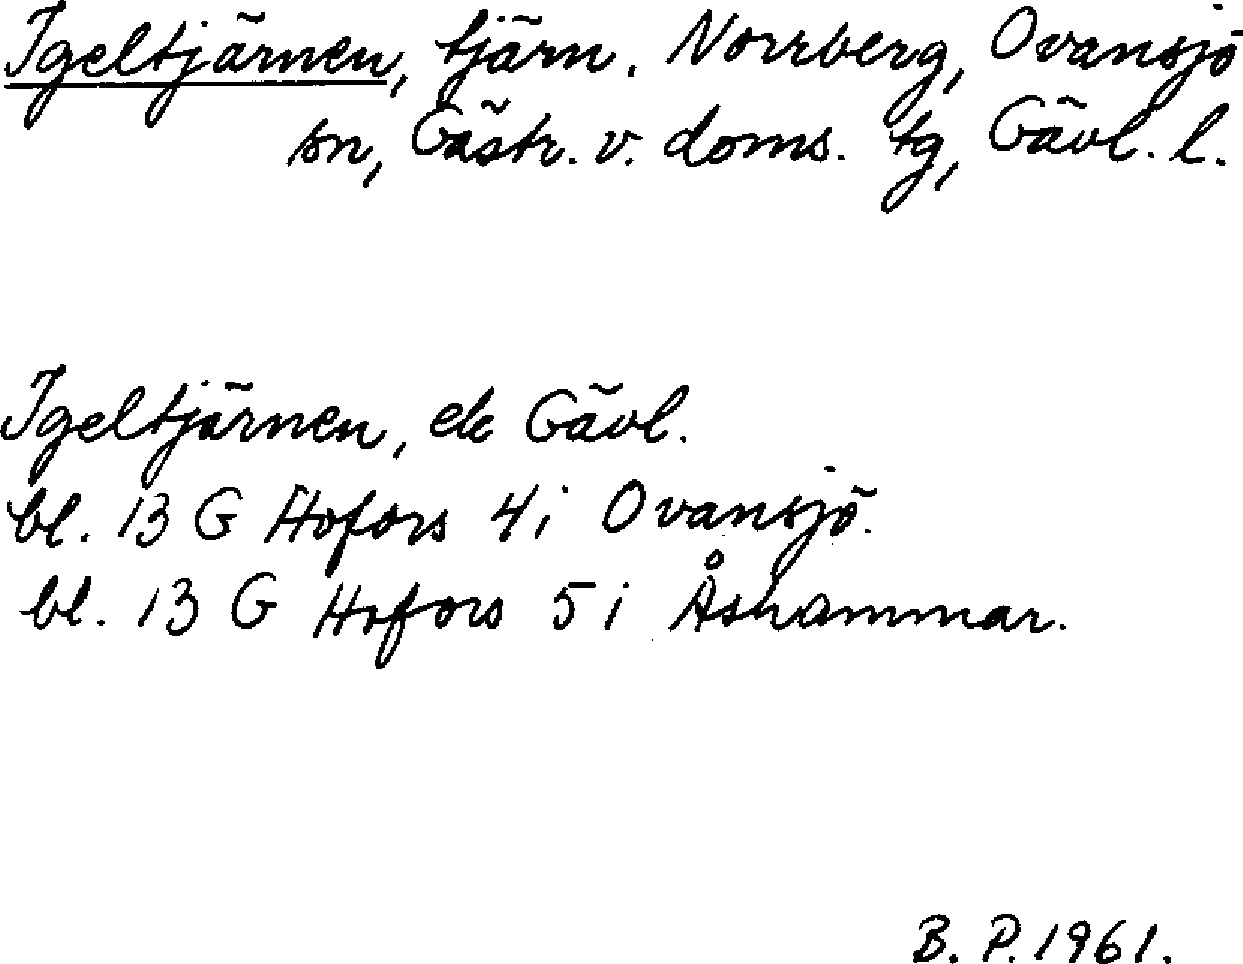 Igeltjärnen, tjärn. Norrberg, Ovansjö
sn, Gästr. v. doms. tg, Gävl. l.
Igeltjärnen, ek Gävl.
bl. 13 G Hofors 4i Ovansjö.
bl. 13 G Hofors 5i Åshammar.
B. P. 1961.